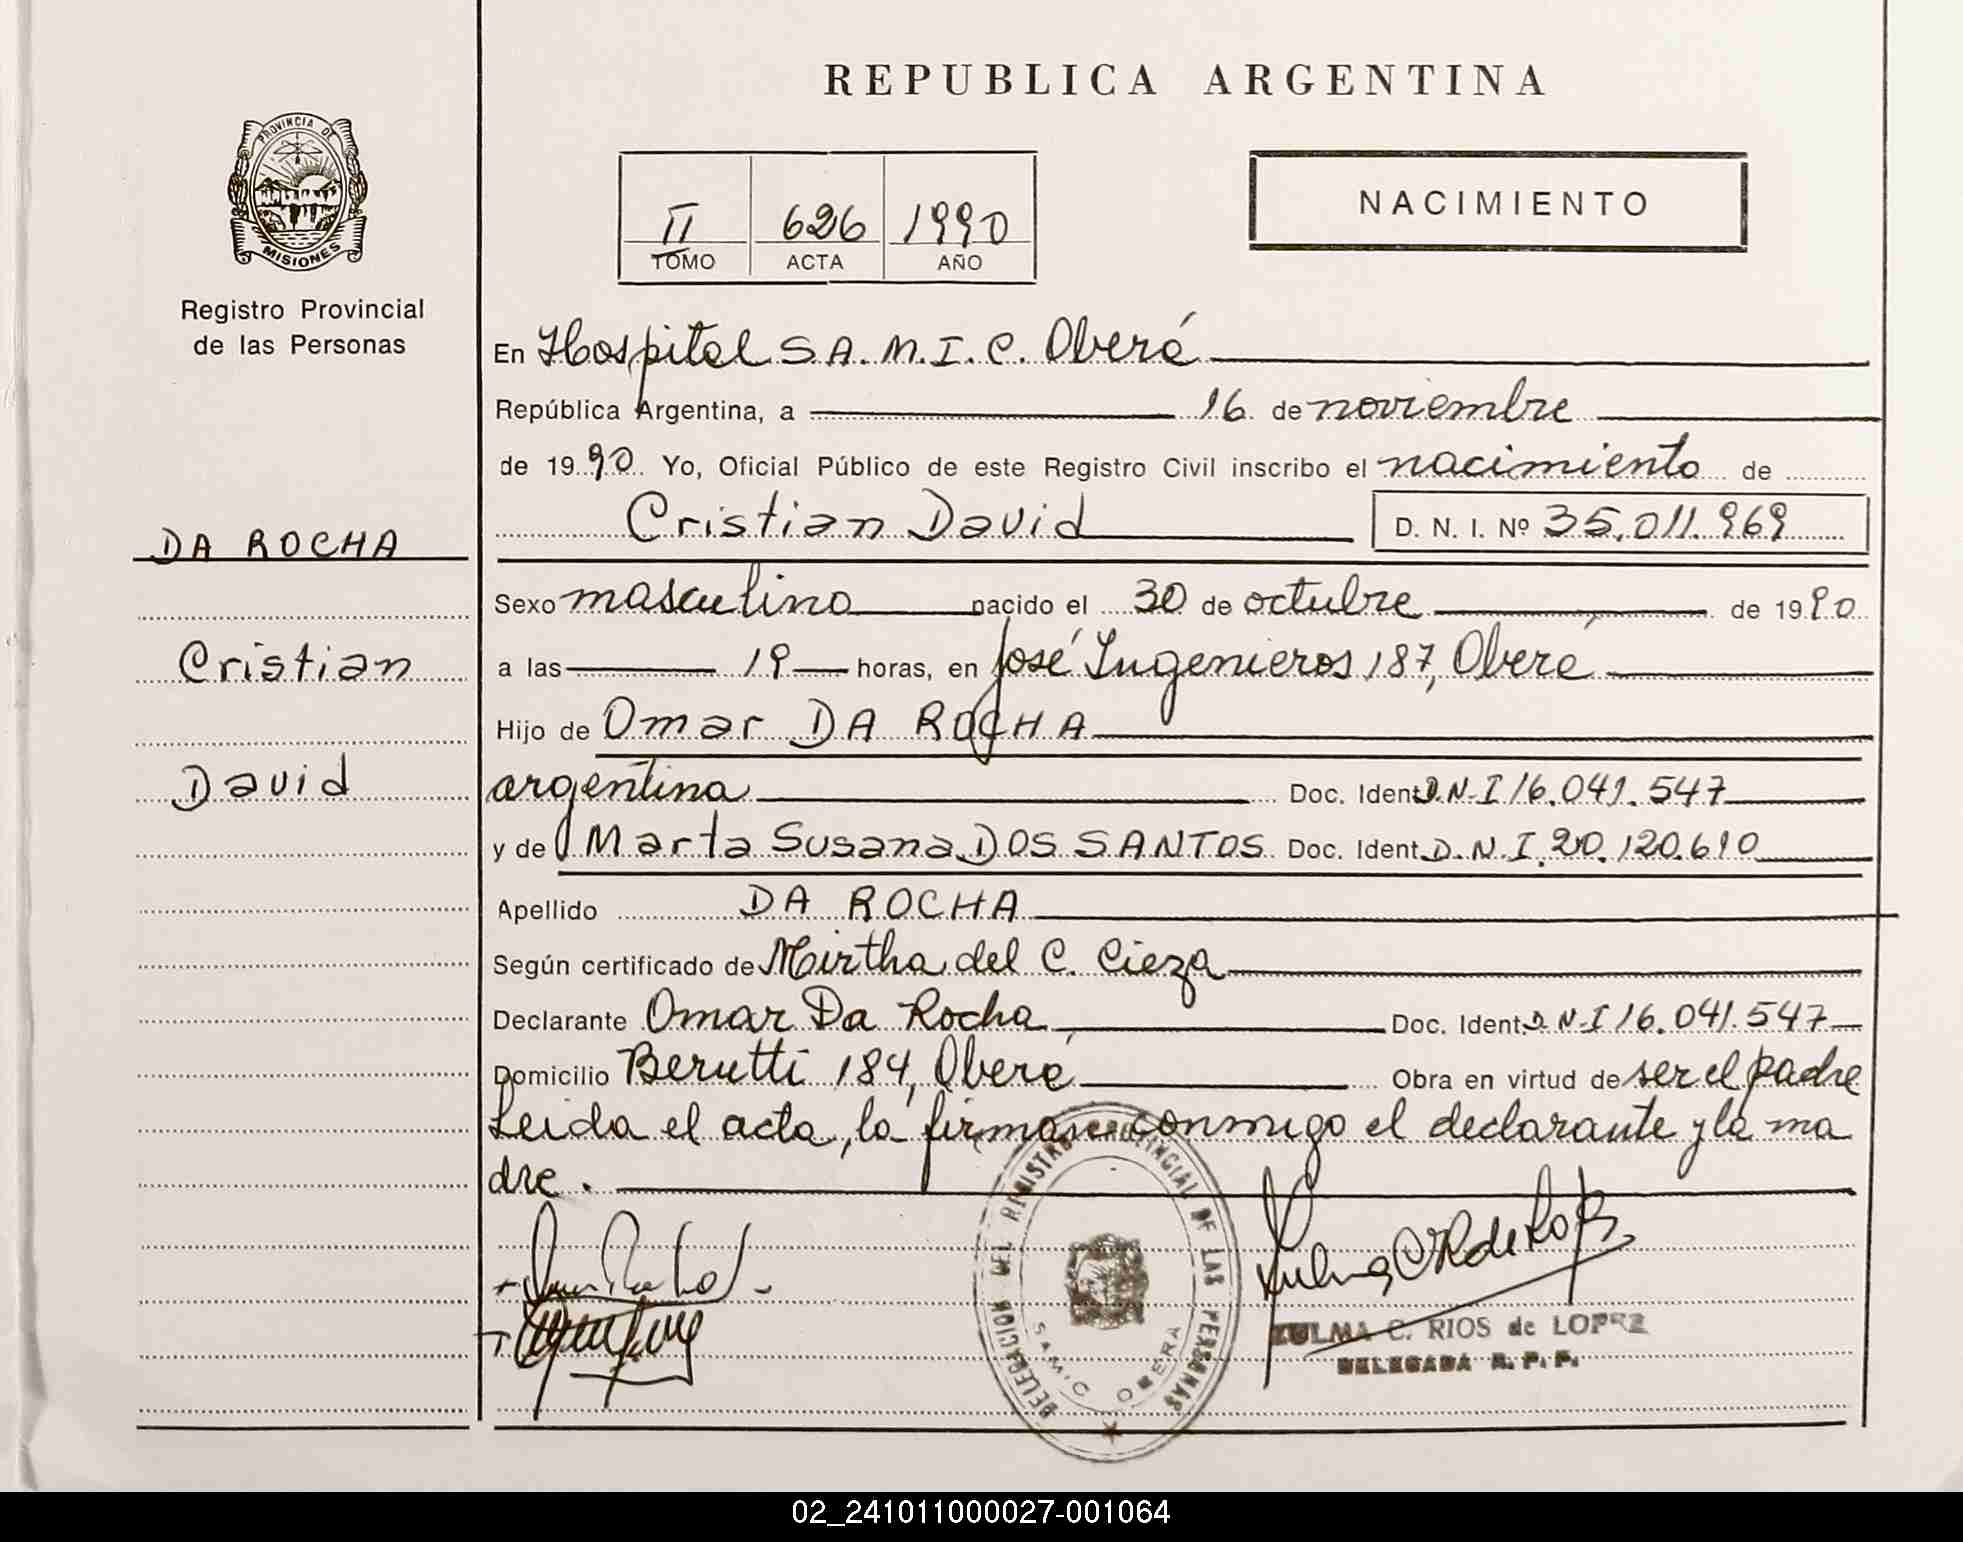 REPUBLICA ARGENTINA
PROVINCIA DE
MISIONES
Registro Provincial
de las Personas
II 626 1990
TOMO ACTA AÑO
NACIMIENTO
En Hospital S.A.M.I.C. Oberá
República Argentina, a 16 de noviembre
de 1990 Yo, Oficial Público de este Registro Civil inscribo el nacimiento de
Cristian David D. N. I. Nº 35.011.969
DA ROCHA
Cristian
David
Sexo masculino nacido el 30 de octubre de 1990
a las 19 horas, en José Ingenieros 187, Oberá
Hijo de Omar DA ROCHA
argentina Doc. Ident. D.N.I 16.041.547
y de Marta Susana DOS SANTOS Doc. Ident. D.N.I. 20.120.610
Apellido DA ROCHA
Según certificado de Mirtha del C. Cieza
Declarante Omar Da Rocha Doc. Ident. D.N.I 16.041.547
Domicilio Berutti 184, Oberá Obra en virtud de ser el padre
Leida el acta, la firman conmigo el declarante y la ma
dre.
DELEGACION DEL REGISTRO PROVINCIAL DE LAS PERSONAS
SAMIC OBERA
ZULMA C. RIOS de LOPEZ
DELEGADA R. P. P.
02_241011000027-001064